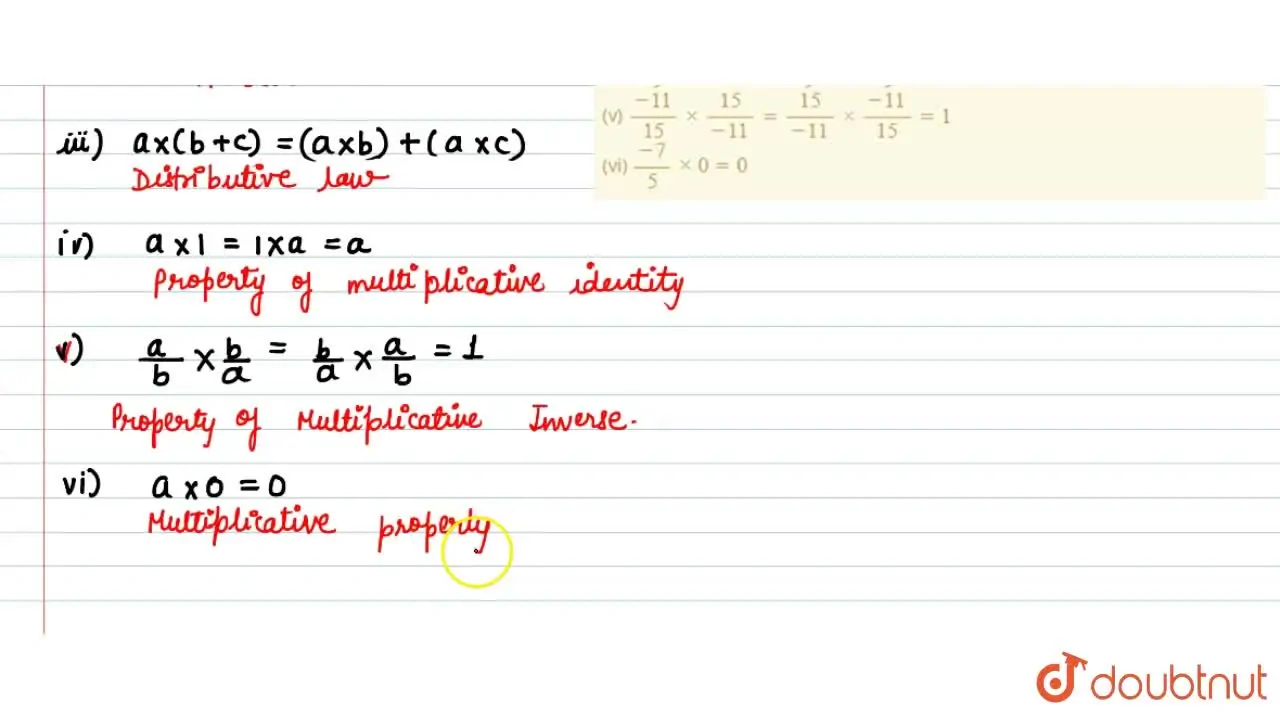 (v) -11/15 × 15/-11 = 15/-11 × -11/15 = 1
(vi) -7/5 × 0 = 0
iii) a×(b+c) = (a×b) + (a×c)
Distributive law
iv) a×1 = 1×a = a
Property of multiplicative identity
v) a/b × b/a = b/a × a/b = 1
Property of Multiplicative Inverse.
vi) a×0 = 0
Multiplicative property
doubtnut